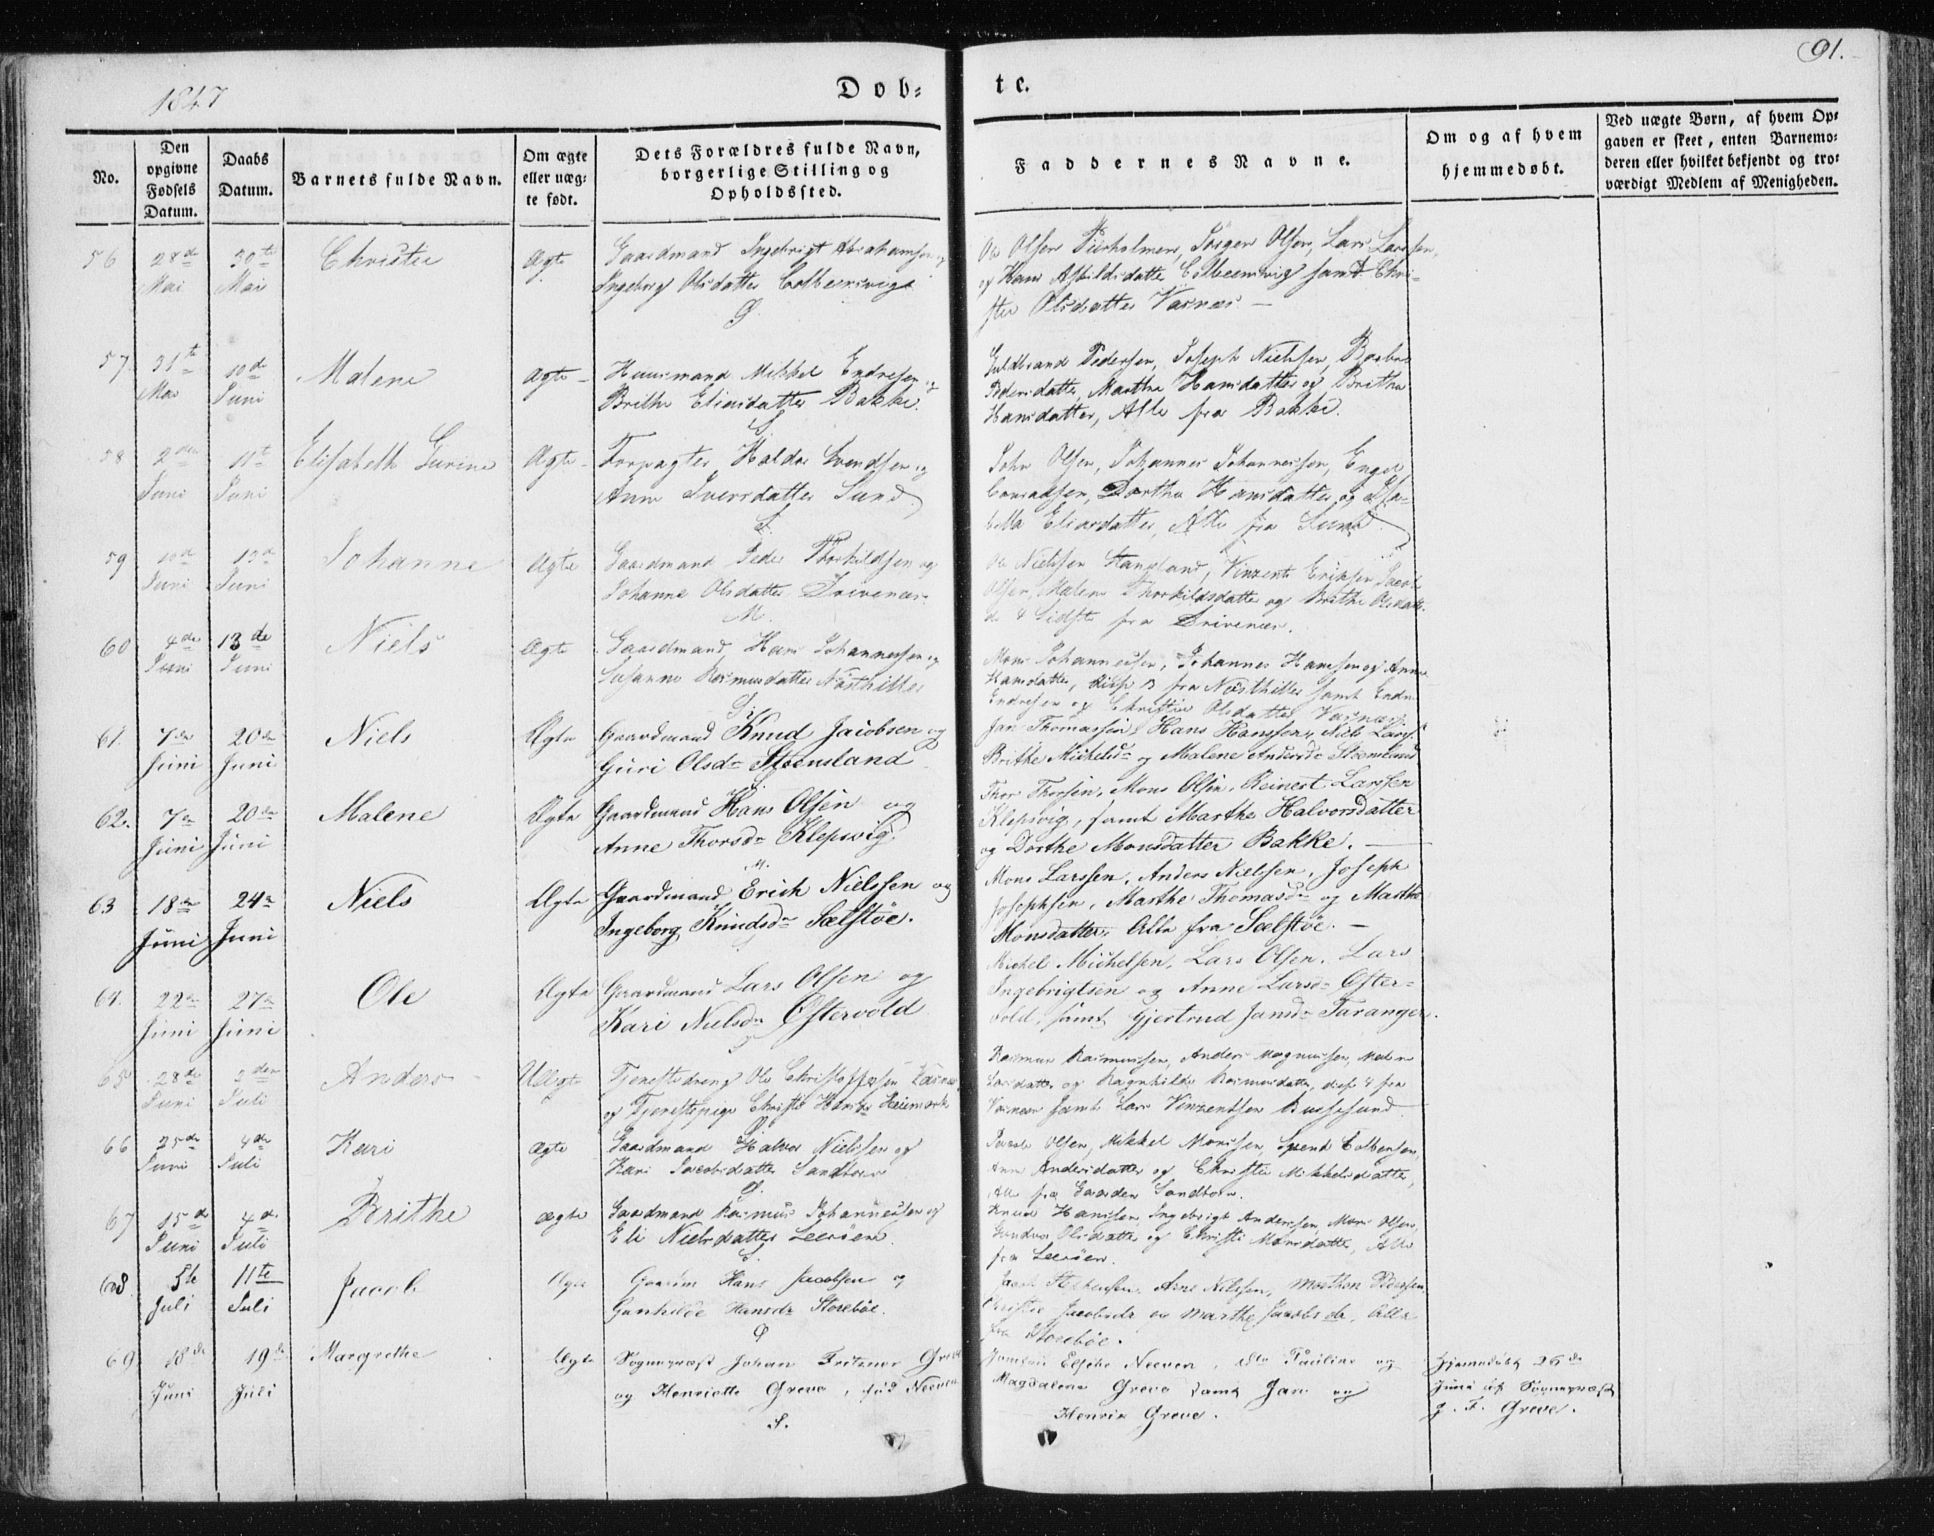 1847
Døb-
te.
91.
No.
Den opgivne Fødsels Datum.
Daabs Datum.
Barnets fulde Navn.
Om ægte eller uægte født.
Dets Forældres fulde Navn, borgerlige Stilling og Opholdssted.
Faddernes Navne.
Om og af hvem hjemmedøbt.
Ved uægte Børn, af hvem Opgaven er skeet, enten Barnemoderen eller hvilket bekjendt og troværdigt Medlem af Menigheden.
56 28de Mai 30te Mai Christie Ægte Gaardmand Ingebrigt Abrahamsen og
Ingeborg Olsdatter
Ole Olsen, Jørgen Olsen, Lars Larssen,
samt Chri-
stie Olsdatter Vasnæs
57 31te Mai 10de Juni Malene Ægte Huusmand Mikkel Endresen og
Brithe Eliasdatter Bakke.
Guldbrand Pedersen, Joseph Nielssen, Barbra
Pedersdatter, Marthe Hansdatter og Brithe
Hansdatter, Alle fra Bakke.
58 2den Juni 11te Juni Elisabeth Gurine Ægte Forpagter Haldor Svendsen og
Anne Iversdatter Sund
John Olsen, Johannes Johannessen, Engel
Dorthe Hansdatter og Isa-
bella Eliasdatter, Alle fra Sund.
59 10de Juni 13de Juni Johanne Ægte Gaardmand Peder Thorkildsen og
Johanne Olsdatter Drivenæs
M.
Ole Nielssen Haugland, Vinzents Eriksen, Jacob
Olsen, Malene Thorkildsdatter og Brithe Olsdatter
de 4 Sidste fra Drivenæs.
60 4de Juni 13de Juni Niels Ægte Gaardmand Hans Johannessen og
Susanne Rasmusdatter Nøsthilder
Mons Johannessen, Johannes Hanssen og Anne
Hansdatter, disse 3 fra Nøsthilder samt Endre
Endresen og Christie Olsdatter Vasnæs.
61. 7de Juni 20de Juni Niels Ægte Gaardmand Knud Jacobsen og
Guri Olsdr Steensland
Jan Thomassen, Hans Hanssen, Niels Larss.
Brithe Michelsdr og Malene Andersdr Steensland
62. 7de Juni 20de Juni Malene Ægte Gaardmand Hans Olsen og
Anne Thorsdr Klepsvig
Thor Thorsen, Mons Olsen, Reinert Larssen
Klepsvig, samt Marthe Halvorsdatter
og Dorthe Monsdatter Bakke.
63 18de Juni 24de Juni Niels Ægte Gaardmand Erich Nielssen og
Ingeborg Knudsdr Sælstöe.
Mons Larssen, Anders Nielssen, Joseph
Josephsen, Marthe Thomasdr og Marthe
Monsdatter, Alle fra Sælstöe.
64. 22de Juni 27de Juni Ole Ægte Gaardmand Lars Olsen og
Kari Nielsdr Østervold
Michel Michelsen, Lars Olsen, Lars
Ingebrigtsen og Anne Larsdr Øster-
vold, samt Gjertrud Jansdr Taranger.
65 28de Juni 2den Juli Anders Uægte Tjenestedreng Ole Christophersen Vasnæs
og Tjenestepige Christie
Rasmus Rasmussen, Anders Magnussen, Malene
Larsdatter og Ragnhilde Rasmusdatter, disse 4 fra
Vasnæs samt Lars Vinzentsen Bussesund
66 25de Juni 4de Juli Kari Ægte Gaardmand Halvor Nielssen og
Kari Jacobsdatter Sandtorv
Jacob Olsen, Mikkel Monssen,
Anne Andersdatter og Christie Mikkelsdatter,
Alle fra Gaarden Sandtorv.
67 15de Juni 4de Juli Brithe Ægte Gaardmand Rasmus Johannessen og
Eli Nielsdatter Leerøen.
Knud Hanssen, Ingebrigt Anderssen, Mons Olsen,
Olsdatter og Christi Monsdatter, Alle
fra Leerøen.
68. 5te Juli 11te Juli Jacob Ægte Gaardm Hans Jacobsen og
Gunhilde Hansdr Storebøe.
Arne Nilssen, Morthen Pedersen
Christie Jacobsdr og Marthe Jacobsdr, Alle
fra Storebøe.
69 18de Juni 19de Juli Margrethe Ægte Sognepræst Johan Fritzner Greve
og Henriette Greve, fød Neeven
S.
Jomfru Elsche Neeven, dto Pauline og
Magdalene Greve samt Jan og
Henrik Greve.
Hjemmedøbt 26de
Juni af Sognepræst
J. F. Greve.